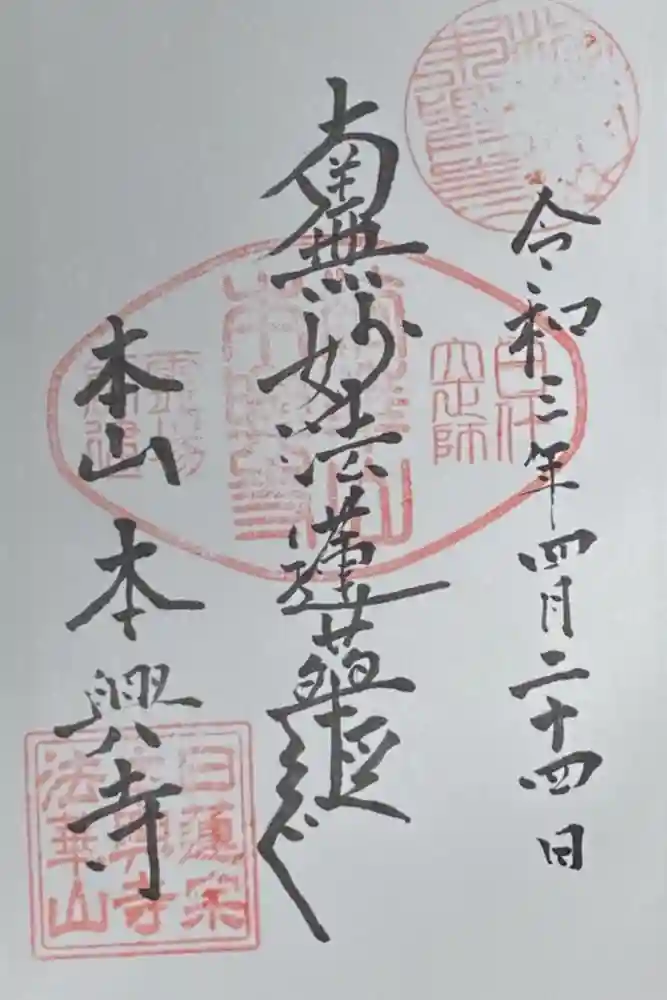 令和三年四月二十四日
南無妙法蓮華経
本山 本興寺
日什
空師
日蓮宗
本興寺
法華山